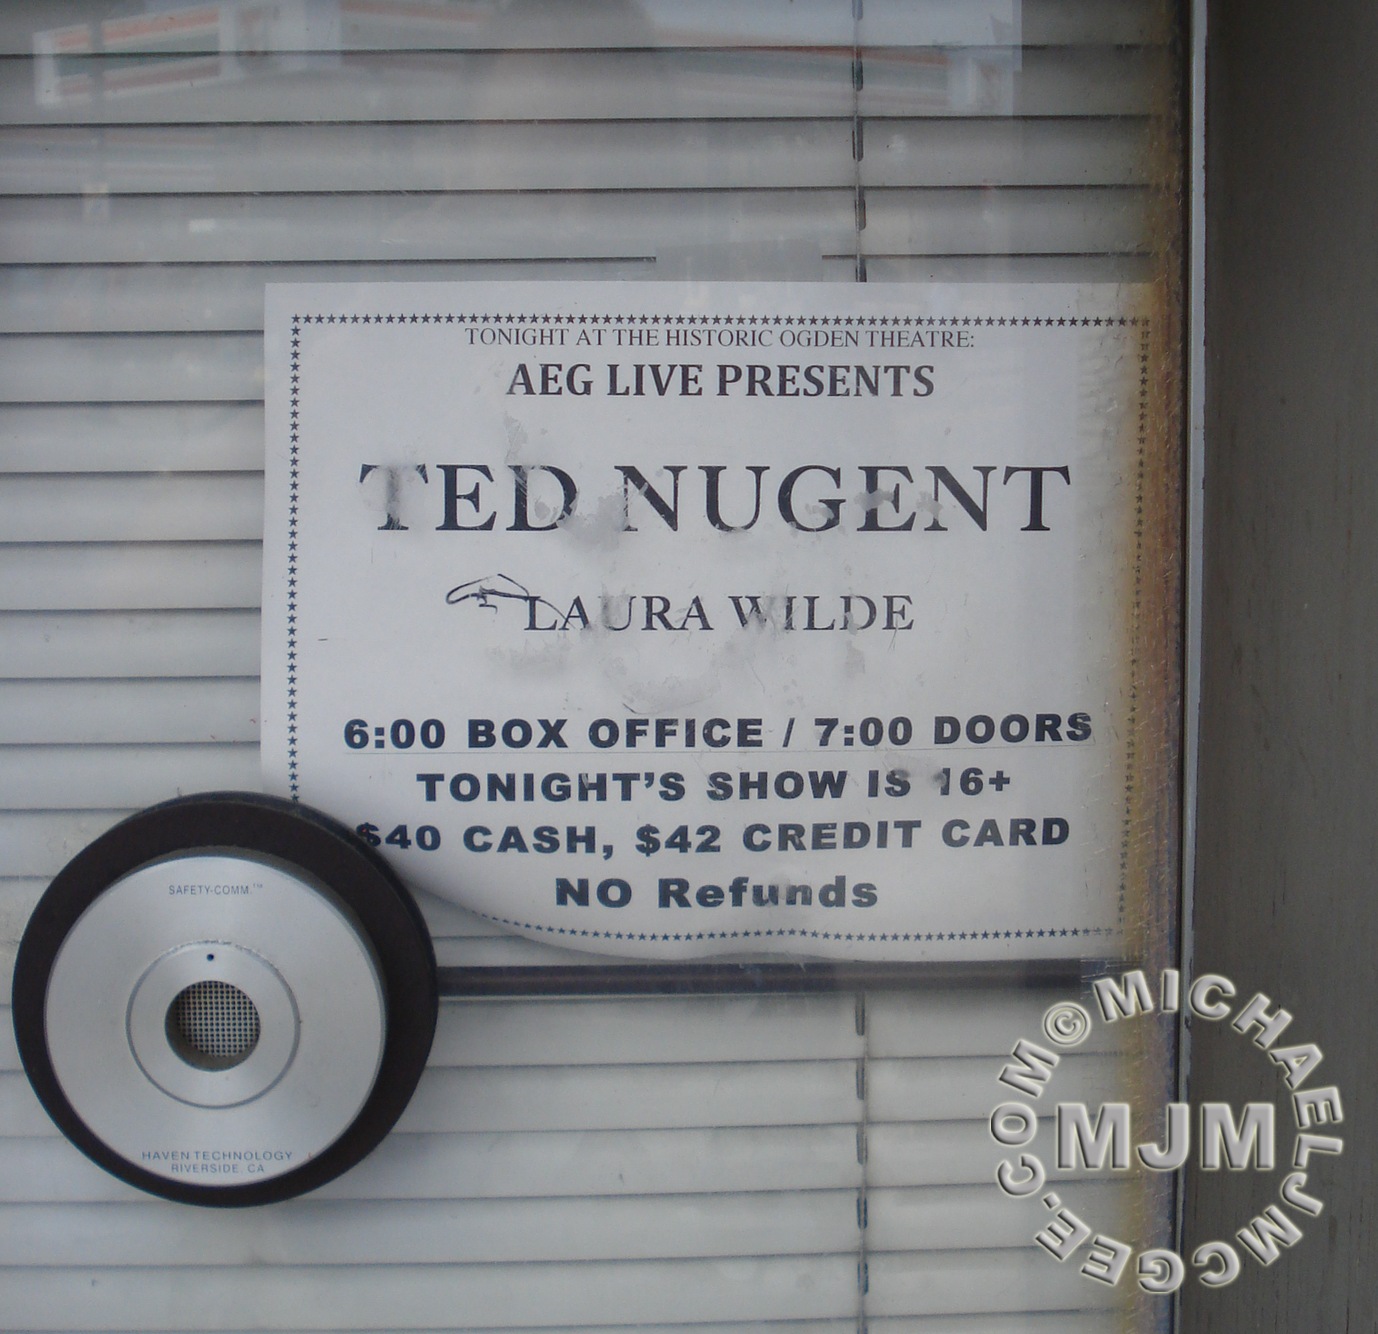 TONIGHT AT THE HISTORIC OGDEN THEATRE:
AEG LIVE PRESENTS
TED NUGENT
LAURA WILDE
6:00 BOX OFFICE / 7:00 DOORS
TONIGHT'S SHOW IS 16+
$40 CASH, $42 CREDIT CARD
NO Refunds
SAFETY-COMM.™
HAVEN TECHNOLOGY
RIVERSIDE, CA
©MICHAELJMCGEE.COM
MJM